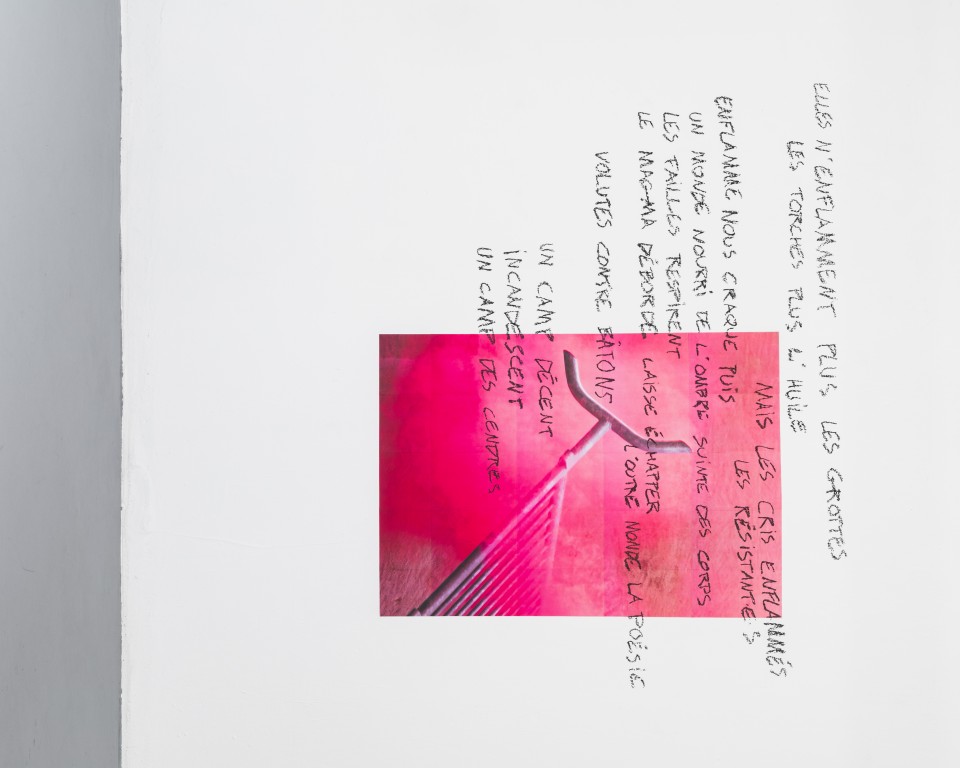 ELLES N'ENFLAMMENT PLUS LES GROTTES
LES TORCHES PLUS L'HUILE
MAIS LES CRIS ENFLAMMÉS
LES RÉSISTANTES
ENFLAMME NOUS CRAQUE PUIS
UN MONDE NOURRI DE L'OMBRE SUINTE DES CORPS
LES FAILLES RESPIRENT
LE MAGMA DÉBORDE LAISSE ÉCHAPPER
L'OUTRE MONDE LA POÉSIE
VOLUTES CONTRE BÂTONS
UN CAMP DÉCENT
INCANDESCENT
UN CAMP DES CENDRES